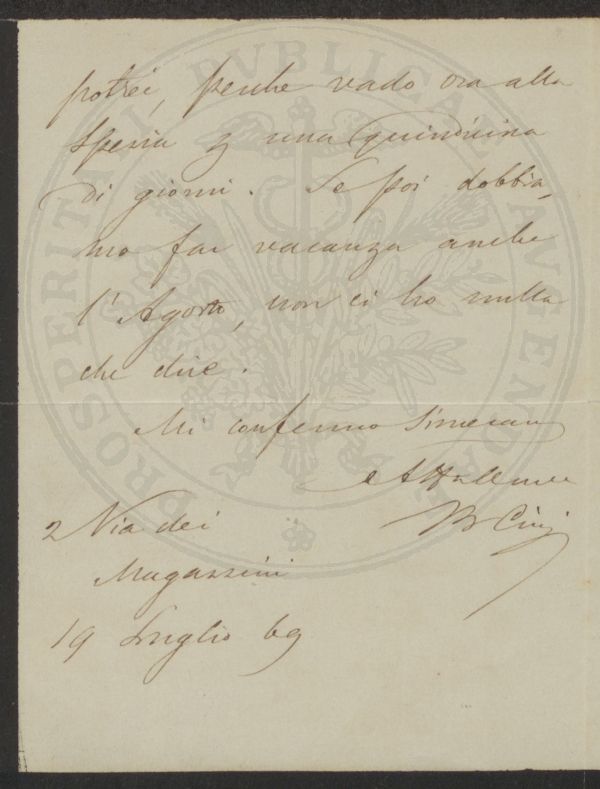 potrei, perche vado ora alla
Spezia p una quindicina
di giorni. Se poi dobbia-
mo far vacanza anche
l'Agosto, non ci ho nulla
che dire.
Mi confermo Sinceram
e Affmo
B Cini
2 Via dei
Magazzini
19 Luglio 69
PROSPERITATI PVBLICAE AVGENDAE